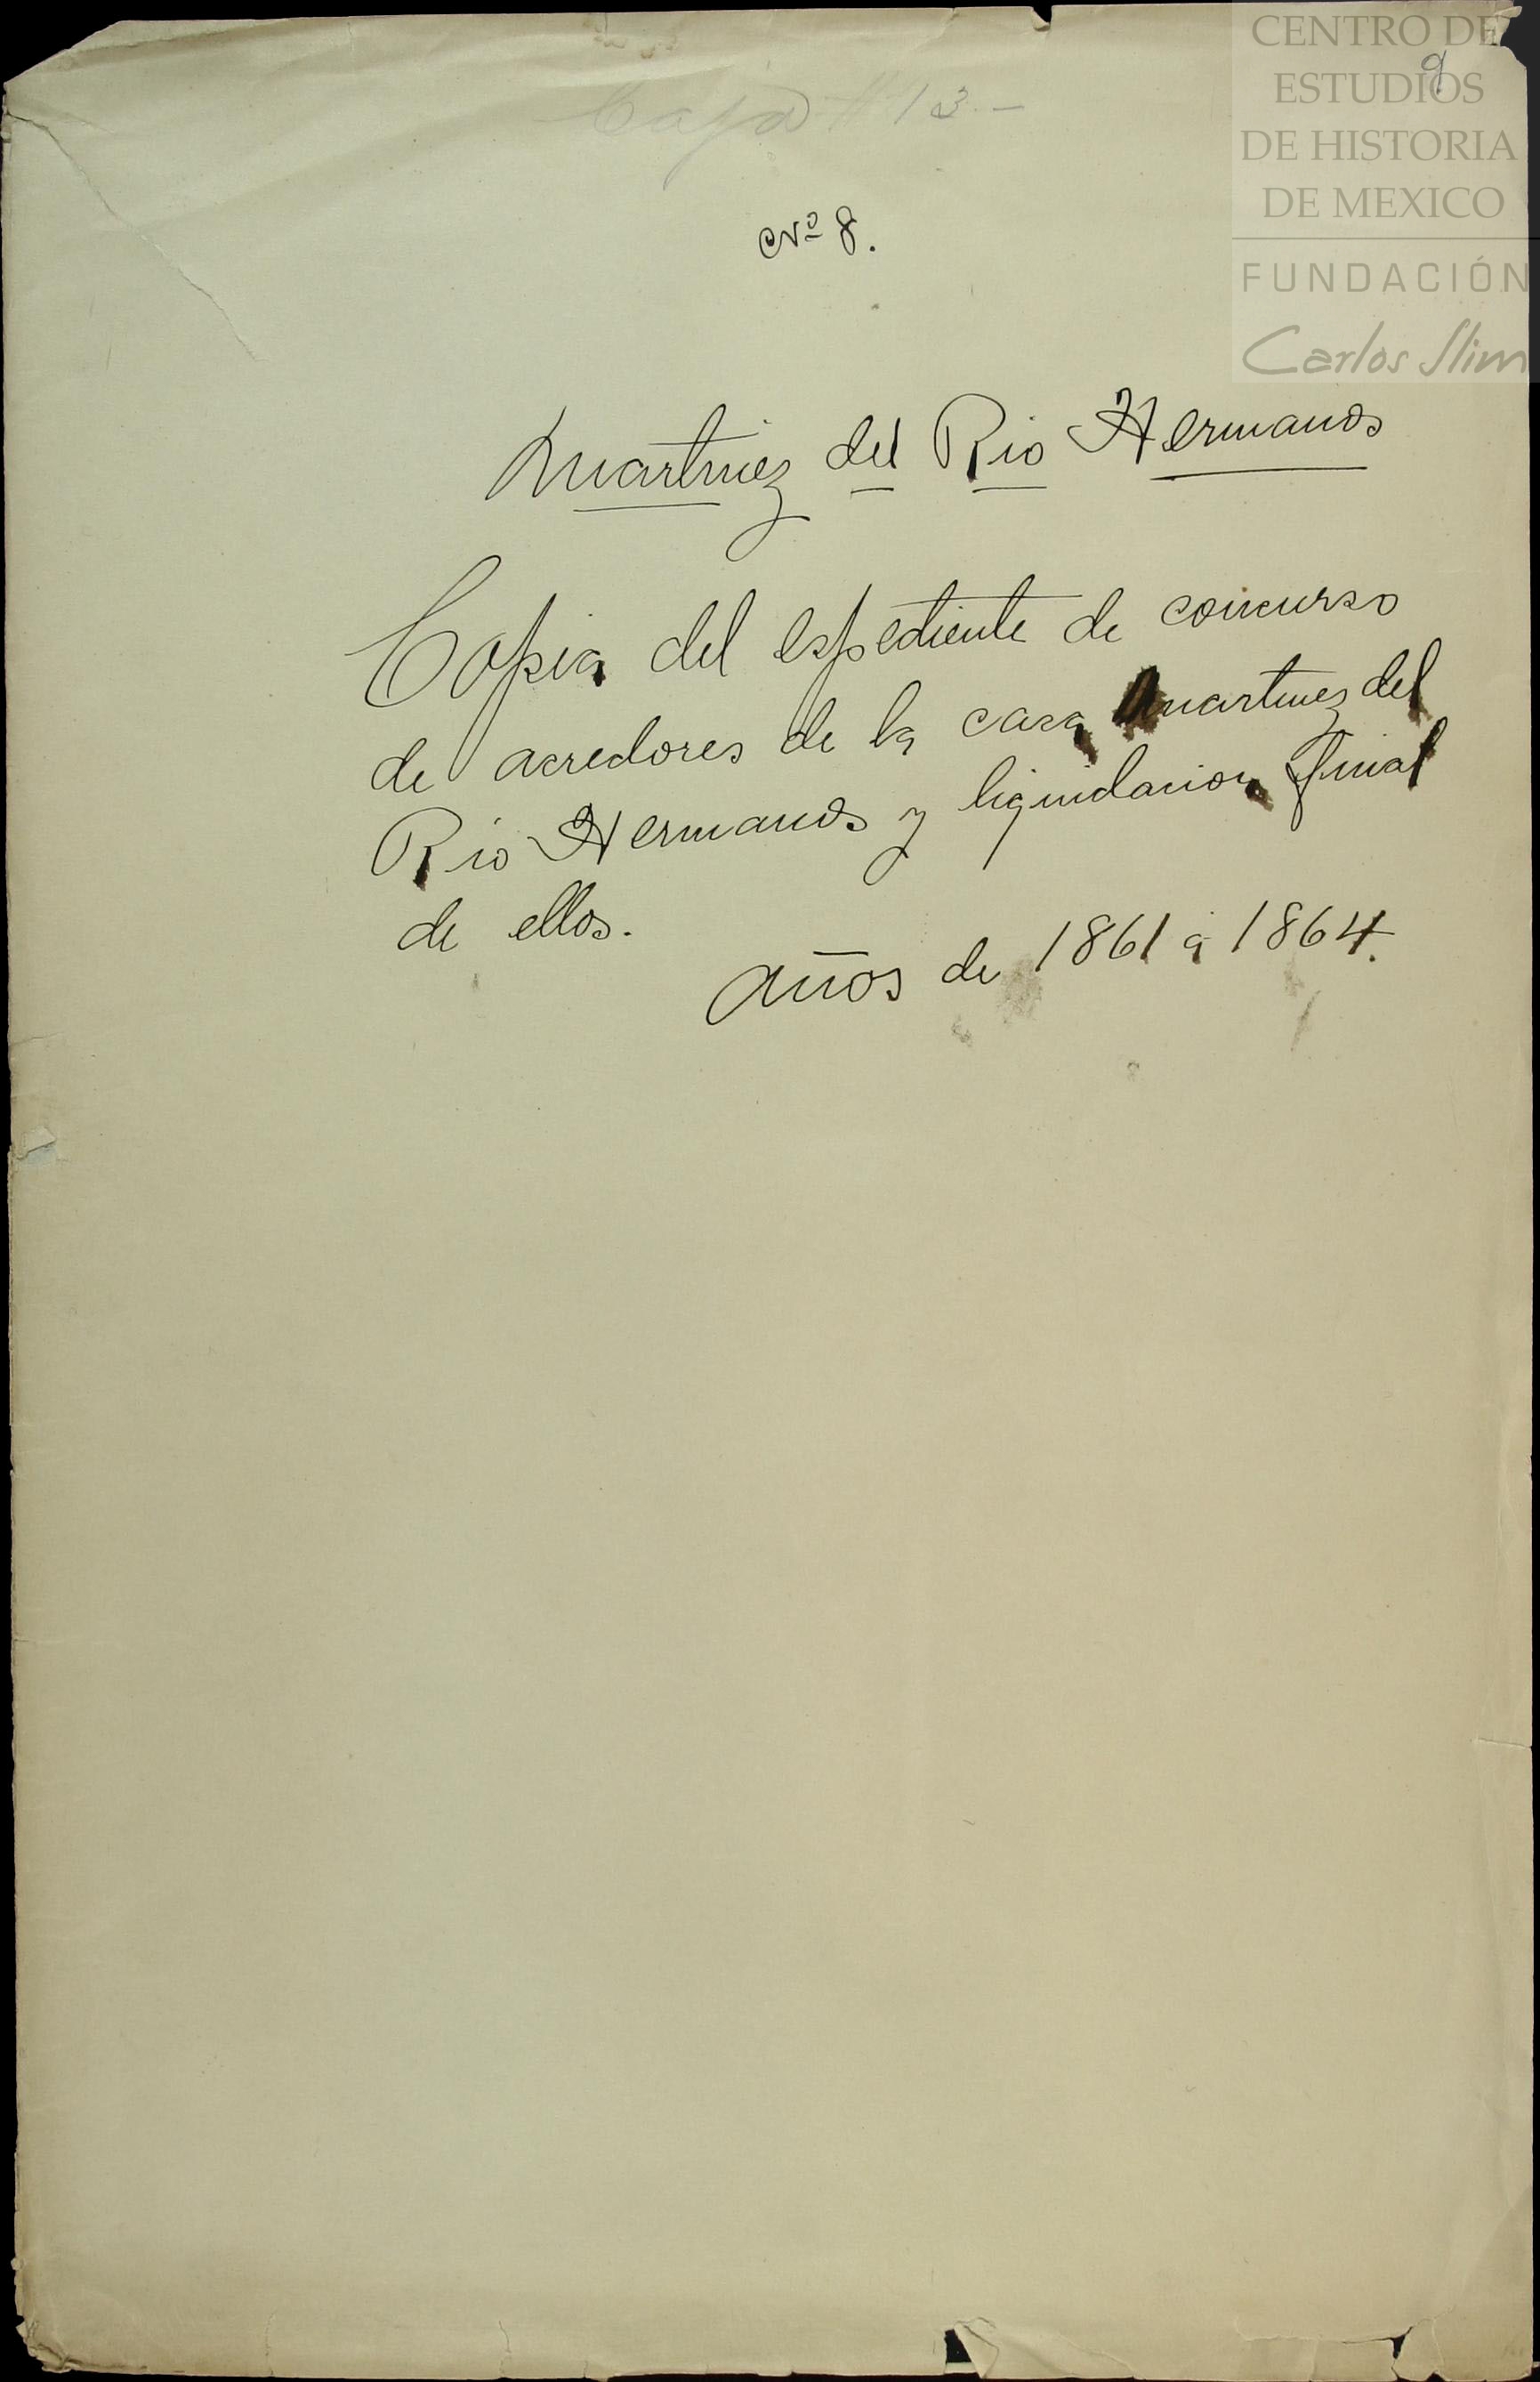 CENTRO DE
ESTUDIOS
DE HISTORIA
DE MEXICO
FUNDACIÓN
Carlos Slim
9
Caja # 13.-
Nº 8.
Martinez del Rio Hermanos
Copia del espediente de concurso
de acredores de la casa Martinez del
Rio Hermanos y liquidacion final
de ellos.
Años de 1861 á 1864.